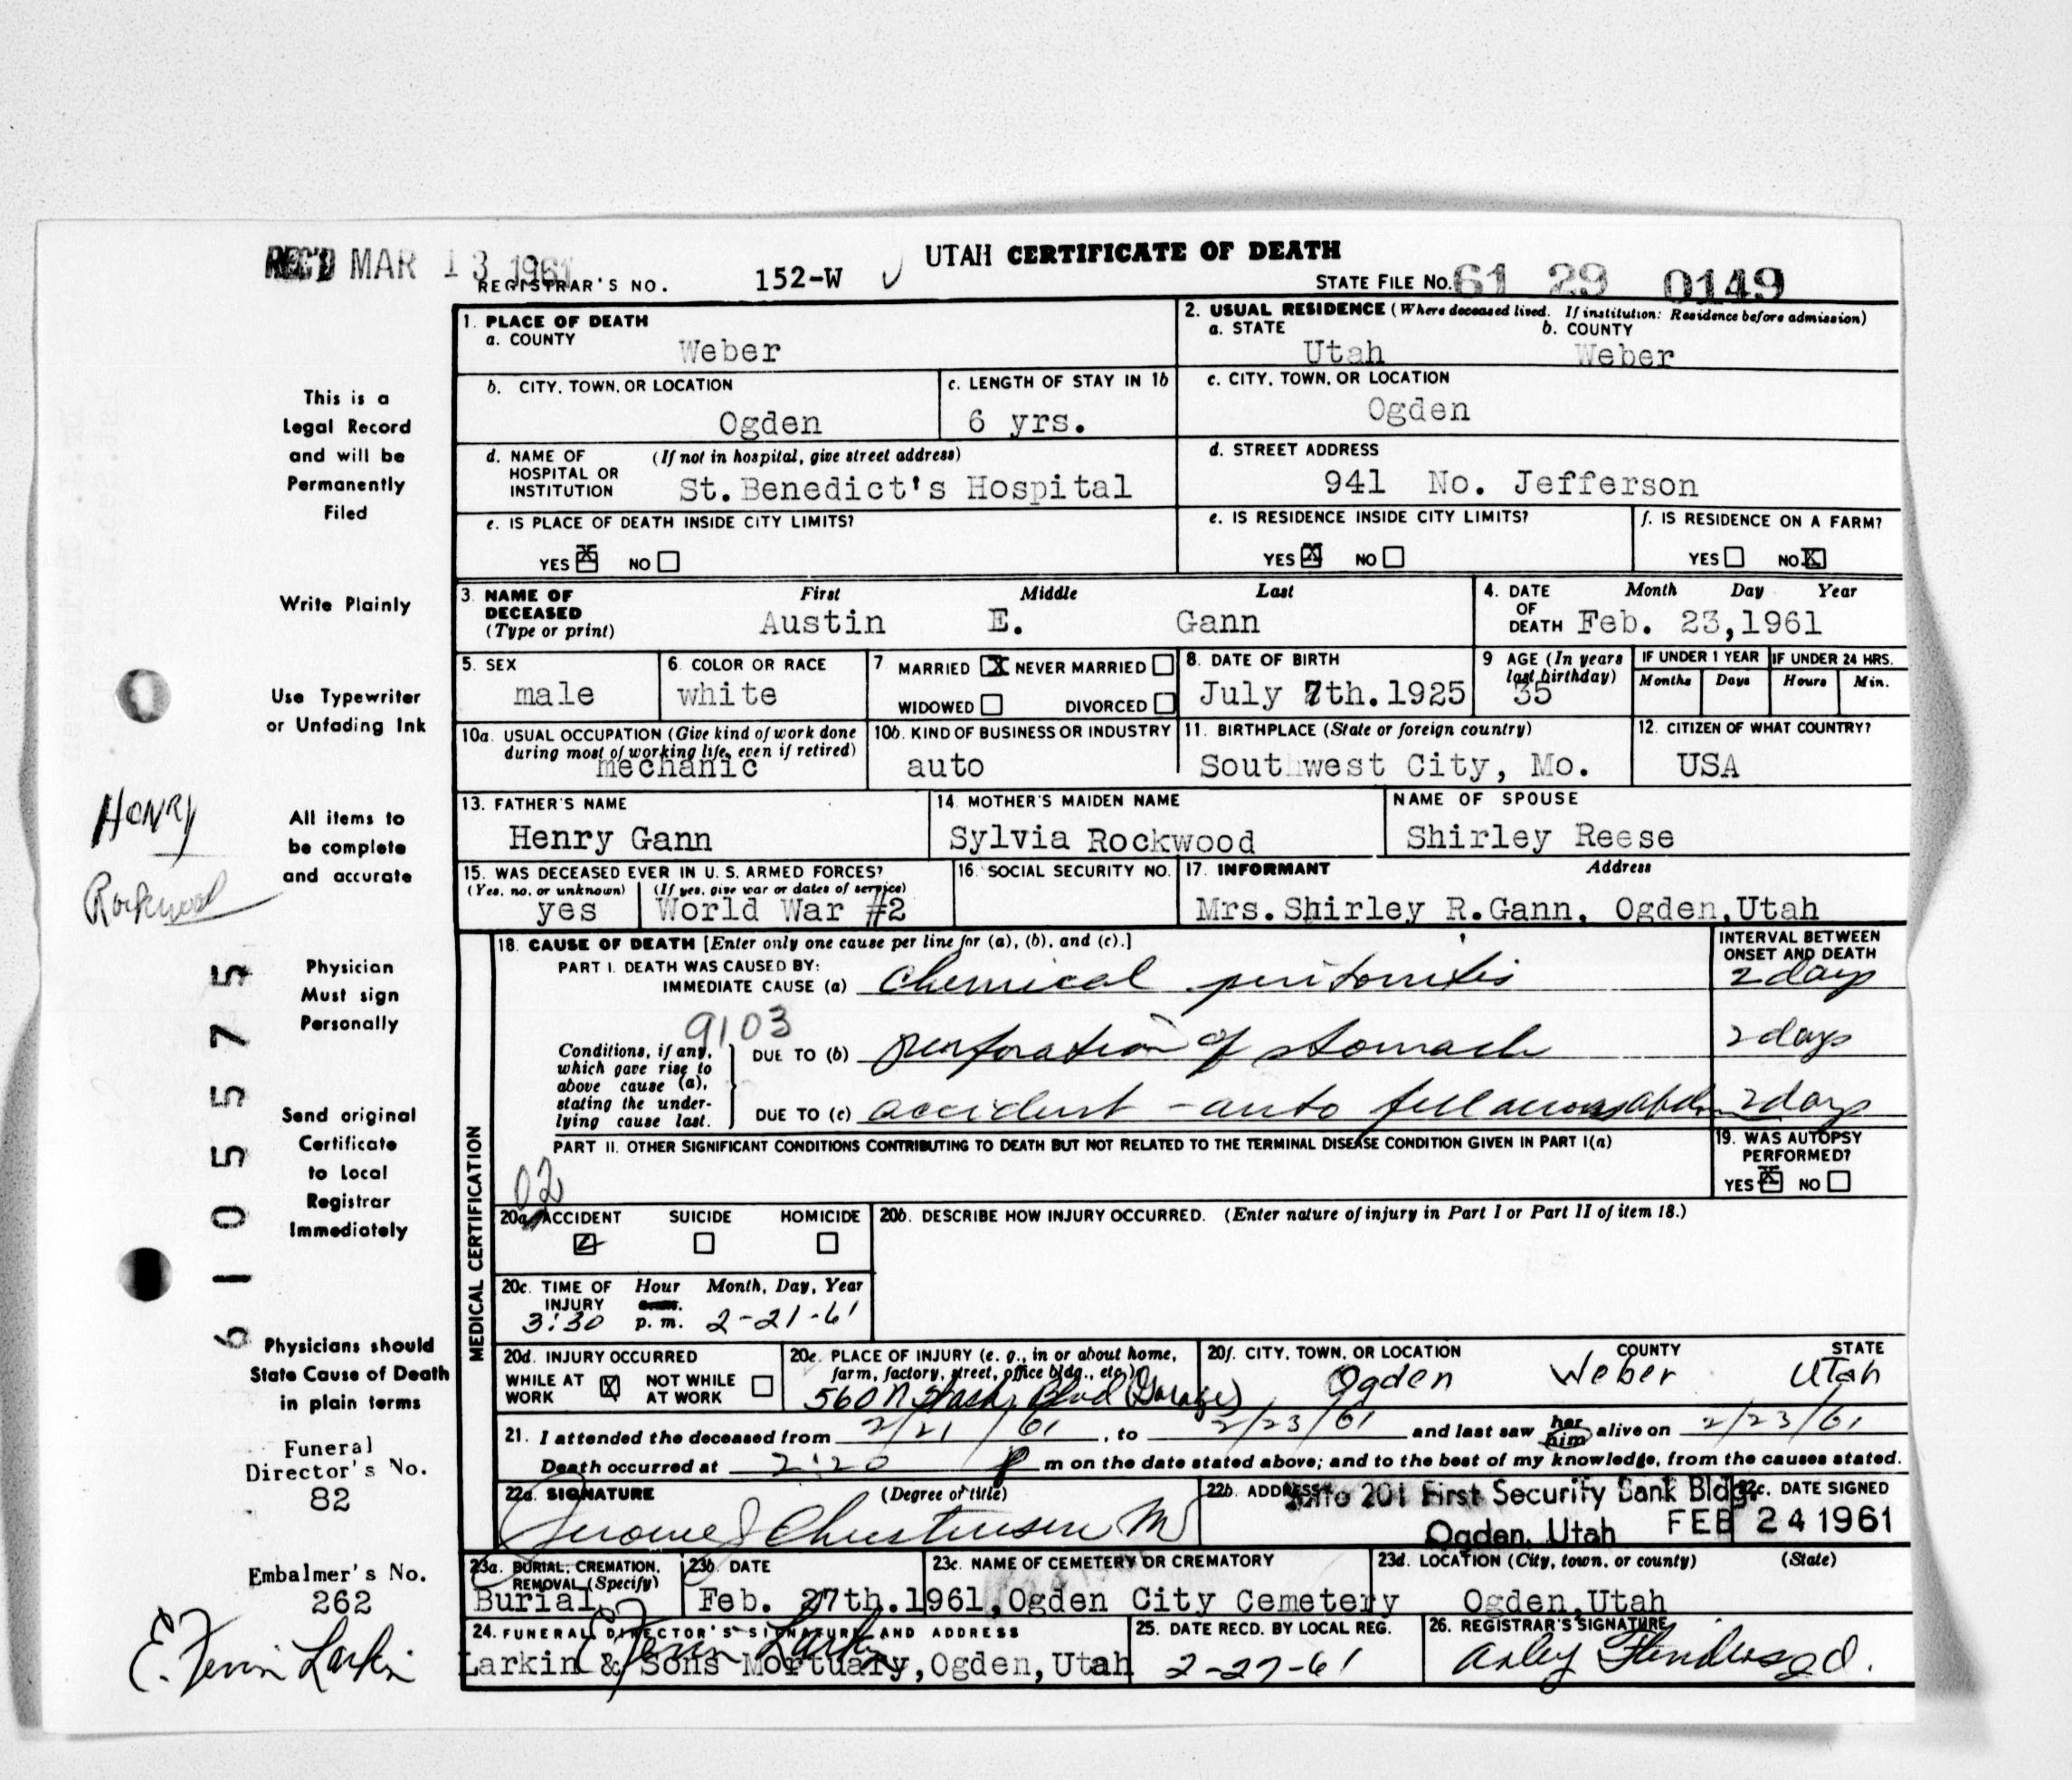 UTAH CERTIFICATE OF DEATH
REC'D MAR 13 1961
REGISTRAR'S NO. 152-W
STATE FILE NO. 61 29 0149
This is a
Legal Record
and will be
Permanently
Filed
Write Plainly
Use Typewriter
or Unfading Ink
HENRY
Rockwood
All items to
be complete
and accurate
Physician
Must sign
Personally
Send original
Certificate
to Local
Registrar
Immediately
Physicians should
State Cause of Death
in plain terms
610557 5
Funeral
Director's No.
82
Embalmer's No.
262
E. Ferrin Larkin
1. PLACE OF DEATH
a. COUNTY
Weber
2. USUAL RESIDENCE (Where deceased lived. If institution: Residence before admission)
a. STATE b. COUNTY
Utah Weber
b. CITY, TOWN, OR LOCATION
Ogden
c. LENGTH OF STAY IN 1b
6 yrs.
c. CITY, TOWN, OR LOCATION
Ogden
d. NAME OF (If not in hospital, give street address)
HOSPITAL OR
INSTITUTION St.Benedict's Hospital
d. STREET ADDRESS
941 No. Jefferson
e. IS PLACE OF DEATH INSIDE CITY LIMITS?
YES X NO
e. IS RESIDENCE INSIDE CITY LIMITS?
YES X NO
f. IS RESIDENCE ON A FARM?
YES NO X
3. NAME OF First Middle Last
DECEASED
(Type or print) Austin E. Gann
4. DATE Month Day Year
OF
DEATH Feb. 23,1961
5. SEX
male
6. COLOR OR RACE
white
7 MARRIED X NEVER MARRIED
WIDOWED DIVORCED
8. DATE OF BIRTH
July 7th.1925
9 AGE (In years
last birthday)
35
IF UNDER 1 YEAR IF UNDER 24 HRS.
Months Days Hours Min.
10a. USUAL OCCUPATION (Give kind of work done
during most of working life, even if retired)
mechanic
10b. KIND OF BUSINESS OR INDUSTRY
auto
11. BIRTHPLACE (State or foreign country)
Southwest City, Mo.
12. CITIZEN OF WHAT COUNTRY?
USA
13. FATHER'S NAME
Henry Gann
14. MOTHER'S MAIDEN NAME
Sylvia Rockwood
NAME OF SPOUSE
Shirley Reese
15. WAS DECEASED EVER IN U. S. ARMED FORCES?
(Yes, no, or unknown) (If yes, give war or dates of service)
yes World War #2
16. SOCIAL SECURITY NO.
17. INFORMANT Address
Mrs.Shirley R.Gann, Ogden,Utah
MEDICAL CERTIFICATION
18. CAUSE OF DEATH [Enter only one cause per line for (a), (b), and (c).]
INTERVAL BETWEEN
ONSET AND DEATH
PART I. DEATH WAS CAUSED BY:
IMMEDIATE CAUSE (a) Chemical peritonitis 2 days
9103
Conditions, if any,
which gave rise to
above cause (a),
stating the under-
lying cause last.
DUE TO (b) perforation of stomach 2 days
DUE TO (c) accident - auto fell across abdm 2 days
PART II. OTHER SIGNIFICANT CONDITIONS CONTRIBUTING TO DEATH BUT NOT RELATED TO THE TERMINAL DISEASE CONDITION GIVEN IN PART I(a)
02
19. WAS AUTOPSY
PERFORMED?
YES X NO
20a. ACCIDENT SUICIDE HOMICIDE
20b. DESCRIBE HOW INJURY OCCURRED. (Enter nature of injury in Part I or Part II of item 18.)
20c. TIME OF Hour Month, Day, Year
INJURY a. m.
3:30 p. m. 2-21-61
20d. INJURY OCCURRED
WHILE AT X NOT WHILE
WORK AT WORK
20e. PLACE OF INJURY (e. g., in or about home,
farm, factory, street, office bldg., etc.)
560 N Wash. Blvd (Garage)
20f. CITY, TOWN, OR LOCATION COUNTY STATE
Ogden Weber Utah
21. I attended the deceased from 2/21/61, to 2/23/61 and last saw her him alive on 2/23/61
Death occurred at 2:20 P m on the date stated above; and to the best of my knowledge, from the causes stated.
22a. SIGNATURE (Degree or title)
Jerome J Christensen M
22b. ADDRESS
Suite 201 First Security Bank Bldg.
Ogden, Utah
22c. DATE SIGNED
FEB 24 1961
23a. BURIAL, CREMATION,
REMOVAL (Specify)
Burial
23b. DATE
Feb. 27th.1961,
23c. NAME OF CEMETERY OR CREMATORY
Ogden City Cemetery
23d. LOCATION (City, town, or county) (State)
Ogden,Utah
24. FUNERAL DIRECTOR'S SIGNATURE AND ADDRESS
E Ferrin Larkin
Larkin & Sons Mortuary,Ogden,Utah
25. DATE RECD. BY LOCAL REG.
2-27-61
26. REGISTRAR'S SIGNATURE